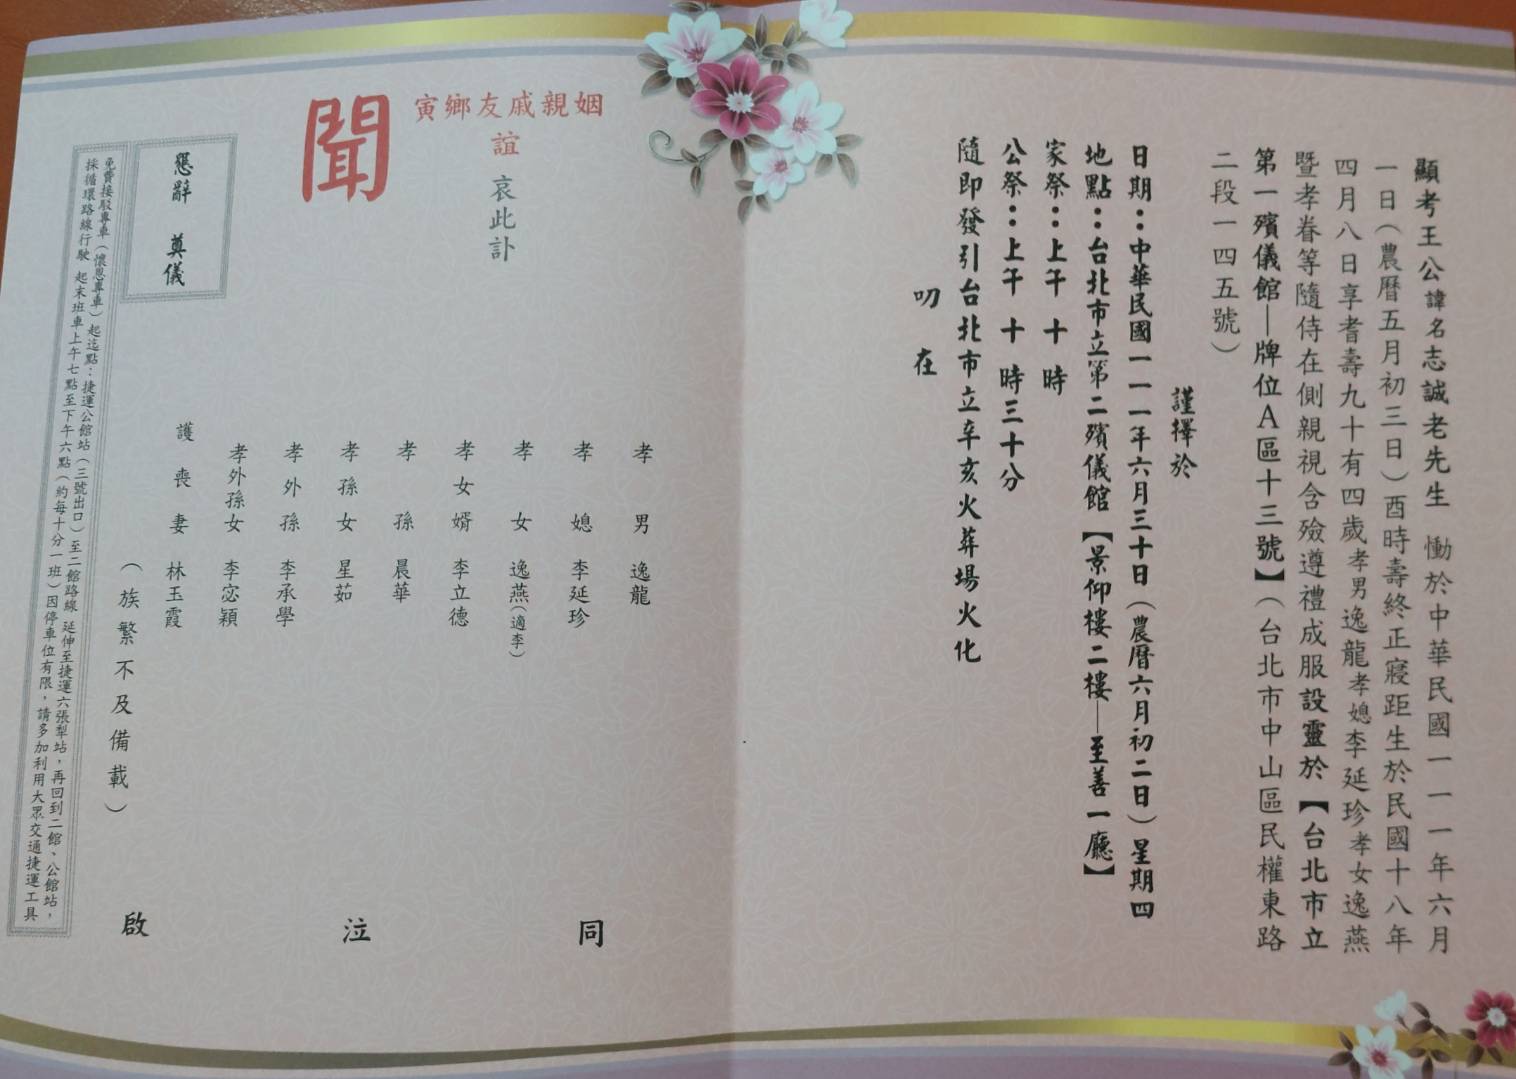 顯考王公諱名志誠老先生 慟於中華民國一一一年六月
一日（農曆五月初三日）酉時壽終正寢距生於民國十八年
四月八日享耆壽九十有四歲孝男逸龍孝媳李延珍孝女逸燕
暨孝眷等隨侍在側親視含殮遵禮成服設靈於【台北市立
第一殯儀館—牌位A區十三號】（台北市中山區民權東路
二段一四五號）
謹擇於
日期：中華民國一一一年六月三十日（農曆六月初二日）星期四
地點：台北市立第二殯儀館【景仰樓二樓—至善一廳】
家祭：上午 十 時
公祭：上午 十 時三十分
隨即發引台北市立辛亥火葬場火化
叨 在
姻親戚友鄉寅
誼 哀此訃
聞
孝 男 逸龍
孝 媳 李延珍
孝 女 逸燕（適李）
孝女婿 李立德
孝 孫 晨華
孝孫女 星茹
孝外孫 李承學
孝外孫女 李宓穎
護喪妻 林玉霞
（族繁不及備載）
同
泣
啟
懇辭 奠儀
免費接駁專車（懷恩專車）起迄點：捷運公館站（三號出口）至二館路線 延伸至捷運六張犁站，再回到二館、公館站，
採循環路線行駛 起末班車上午七點至下午六點（約每十分一班）因停車位有限，請多加利用大眾交通捷運工具